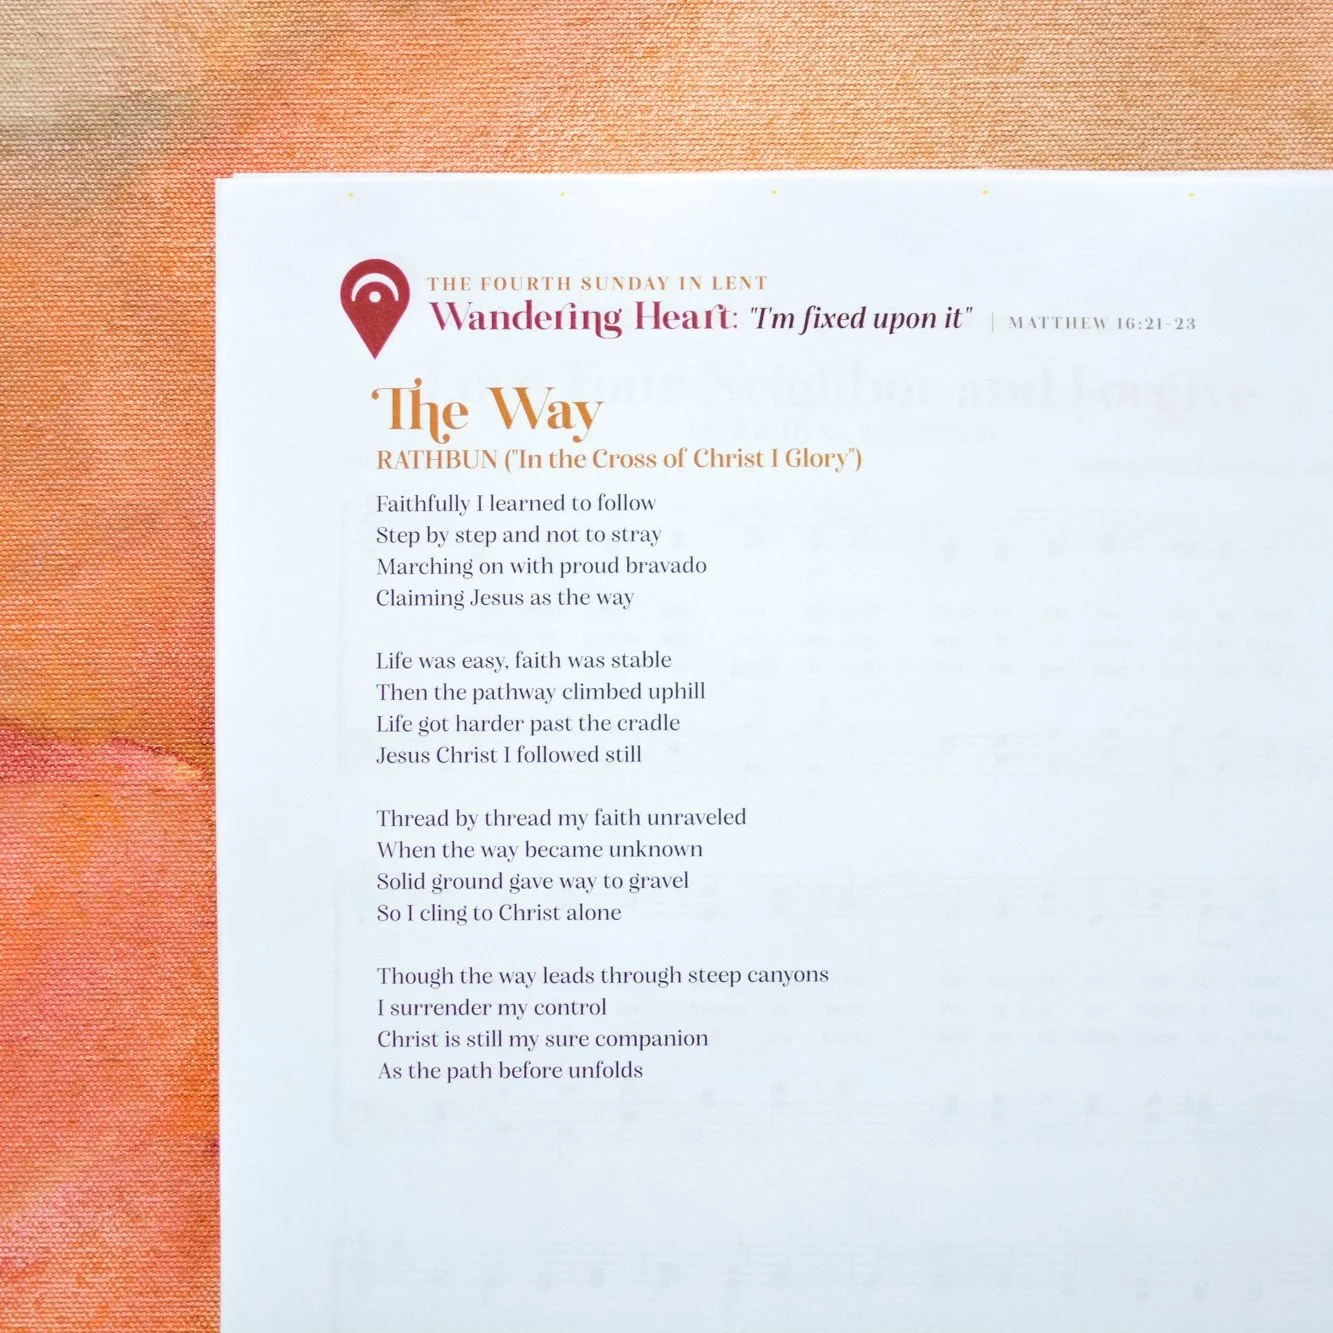 THE FOURTH SUNDAY IN LENT
Wandering Heart: "I'm fixed upon it" | MATTHEW 16:21-23
The Way
RATHBUN ("In the Cross of Christ I Glory")
Faithfully I learned to follow
Step by step and not to stray
Marching on with proud bravado
Claiming Jesus as the way
Life was easy, faith was stable
Then the pathway climbed uphill
Life got harder past the cradle
Jesus Christ I followed still
Thread by thread my faith unraveled
When the way became unknown
Solid ground gave way to gravel
So I cling to Christ alone
Though the way leads through steep canyons
I surrender my control
Christ is still my sure companion
As the path before unfolds
Love Your Neighbor and Forgive